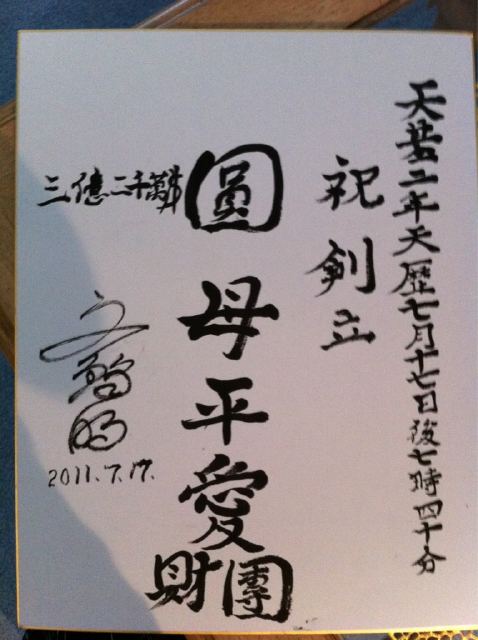 天基二年天歷七月十七日後七時四十分
祝創立
圓母平愛財團
三億二千萬
2011.7.17.